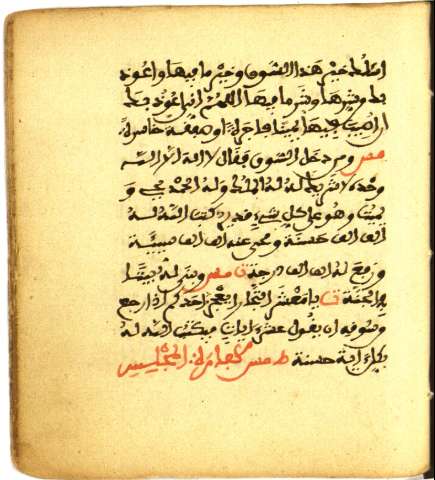 اسئلك خير هذا السوق وخير ما فيها واعوذ
بك من شرها وشر ما فيها اللهم اني اعوذ بك
ان اصيب فيها يمينا فاجرة او صفقة خاسرة
مس ومن دخل السوق فقال لا اله الا الله
وحده لا شريك له له الملك وله الحمد يحي و
يميت وهو على كل شيء قدير كتب الله له
الف الف حسنة ومحى عنه الف الف سيية
ورفع له الف الف درجة ت مس وبنى له بيتا
في الجنة ت يا معشر التجار ايعجز احدكم اذا رجع
من سوفه ان يقول عشر ايات فيكتب الله له
بكل اية حسنة ط مس المجلس